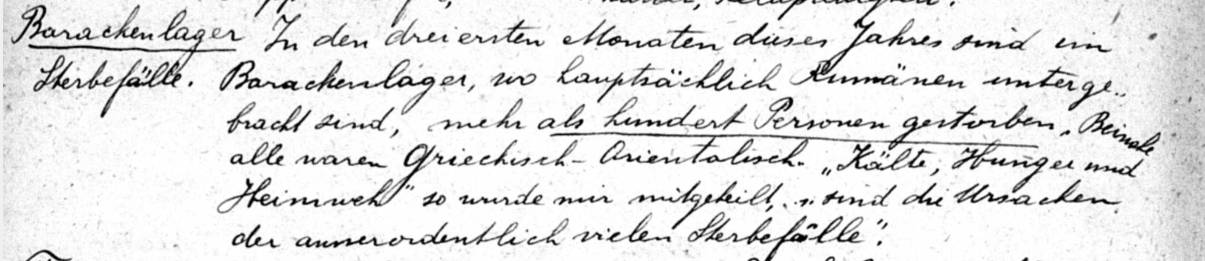 Barackenlager In den drei ersten Monaten dieses Jahres sind im
Sterbefälle. Barackenlager, wo hauptsächlich Rumänen unterge-
bracht sind, mehr als hundert Personen gestorben. Beinahe
alle waren Griechisch-Orientalisch. „Kälte, Hunger und
Heimweh" so wurde mir mitgeteilt, „sind die Ursachen
der ausserordentlich vielen Sterbefälle".